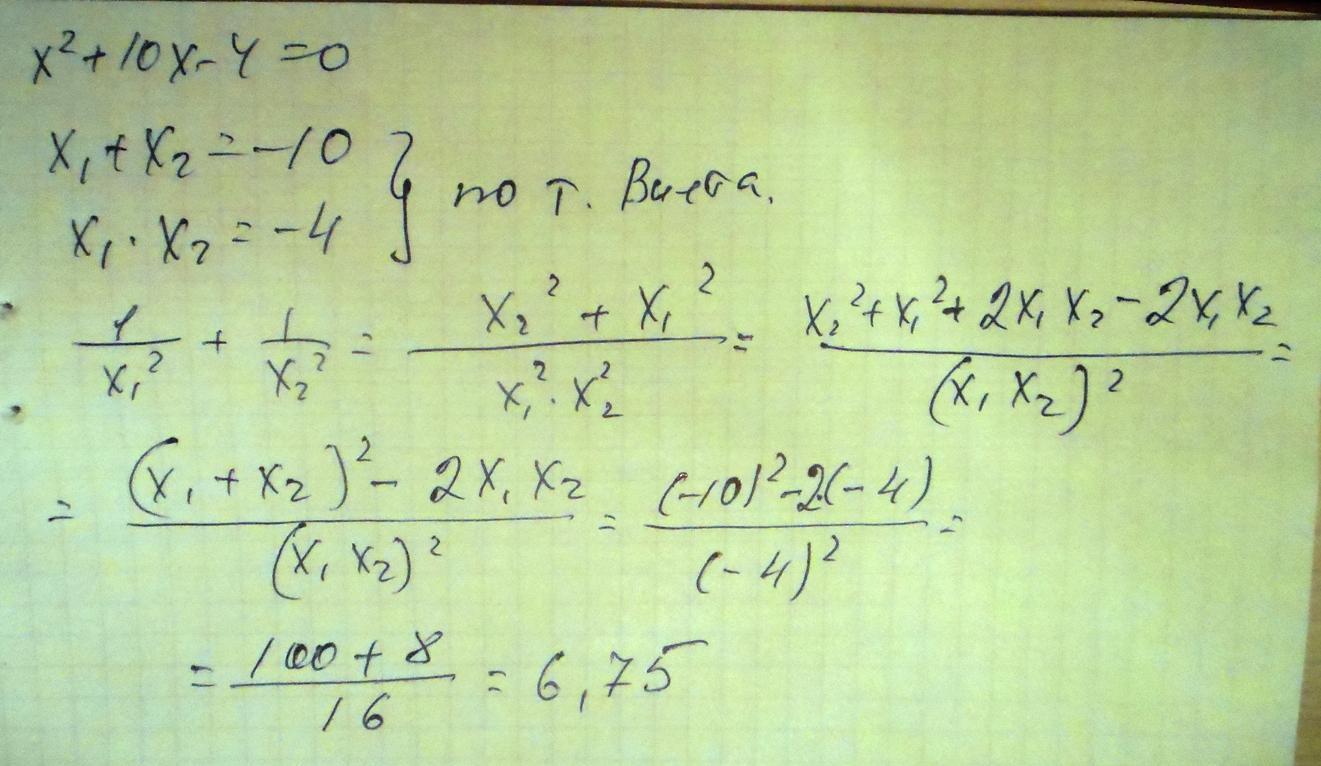 x² + 10x - 4 = 0
x₁ + x₂ = -10
x₁ · x₂ = -4 } по т. Виета.
1/x₁² + 1/x₂² = (x₂² + x₁²)/(x₁² · x₂²) = (x₂² + x₁² + 2x₁x₂ - 2x₁x₂)/(x₁x₂)² =
= ((x₁ + x₂)² - 2x₁x₂)/(x₁x₂)² = ((-10)² - 2·(-4))/(-4)² =
= (100 + 8)/16 = 6,75